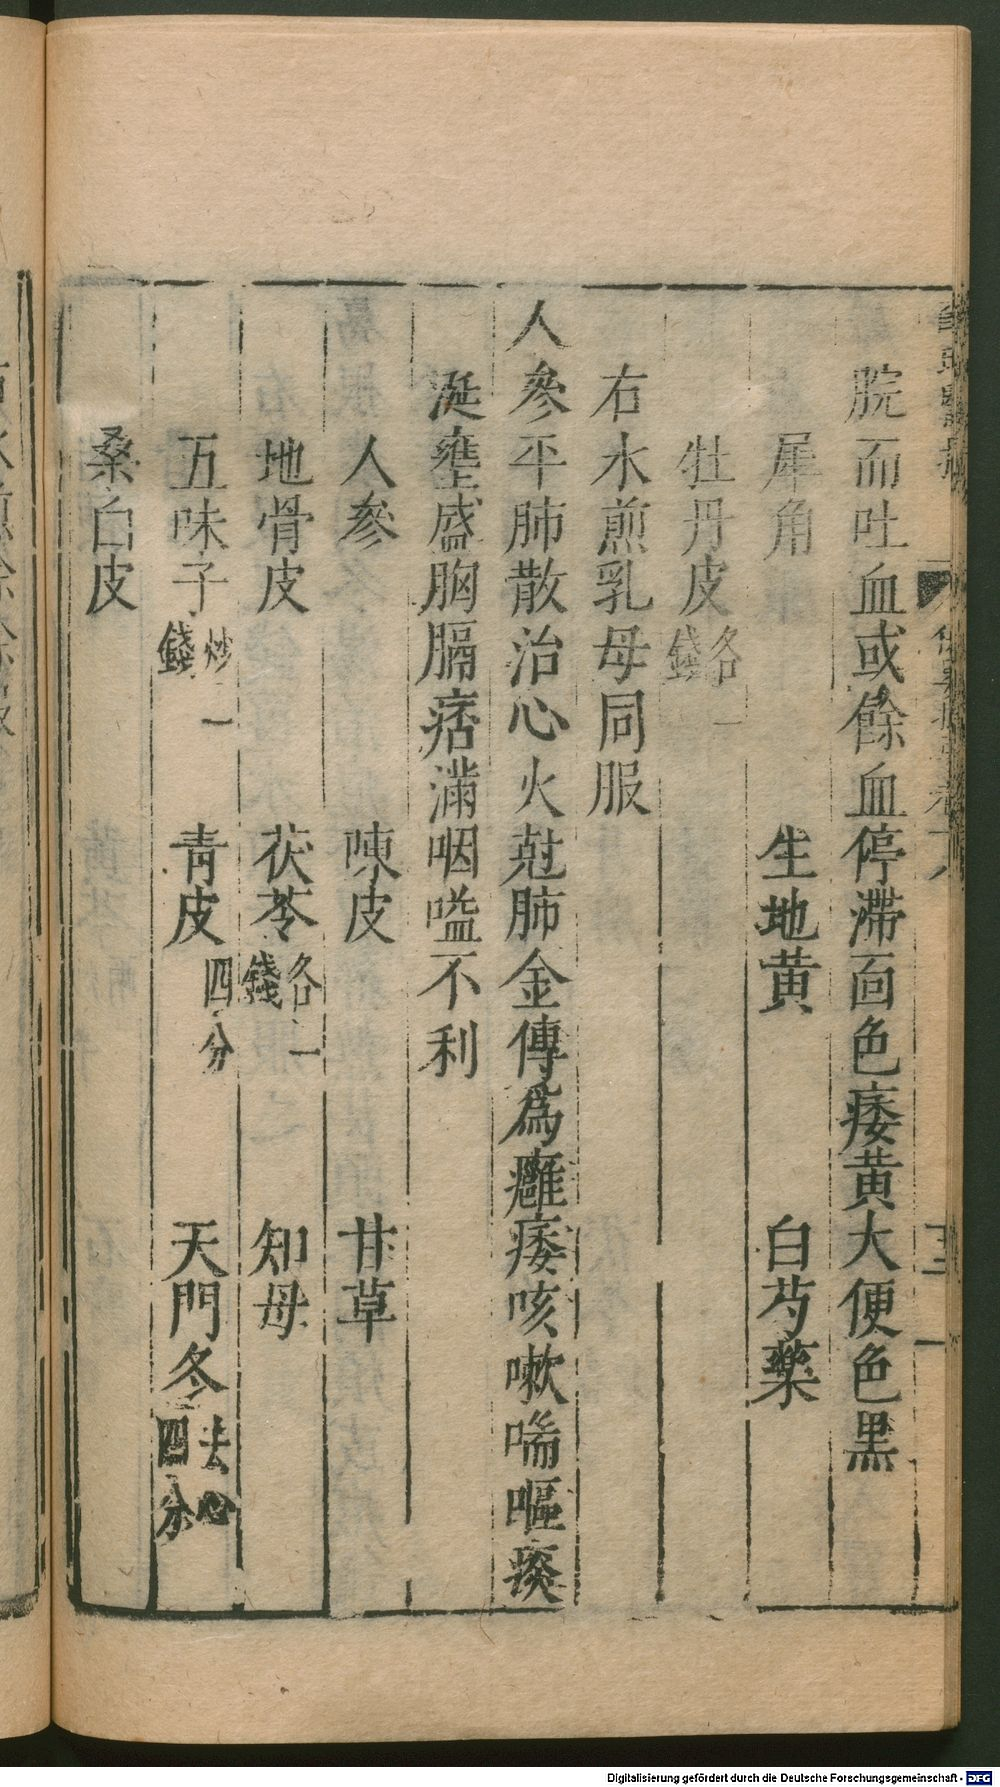 脘而吐血或餘血停滯面色痿黄大便色黒
犀角　生地黄　白芍藥
牡丹皮各一錢
右水煎乳母同服
人參平肺散治心火尅肺金傳爲癰痿咳嗽喘嘔痰
涎壅盛胸膈痞滿咽嗌不利
人參　陳皮　甘草
地骨皮　茯苓各一錢　知母
五味子炒一錢　青皮四分　天門冬去心四分
桑白皮
Digitalisierung gefördert durch die Deutsche Forschungsgemeinschaft - DFG